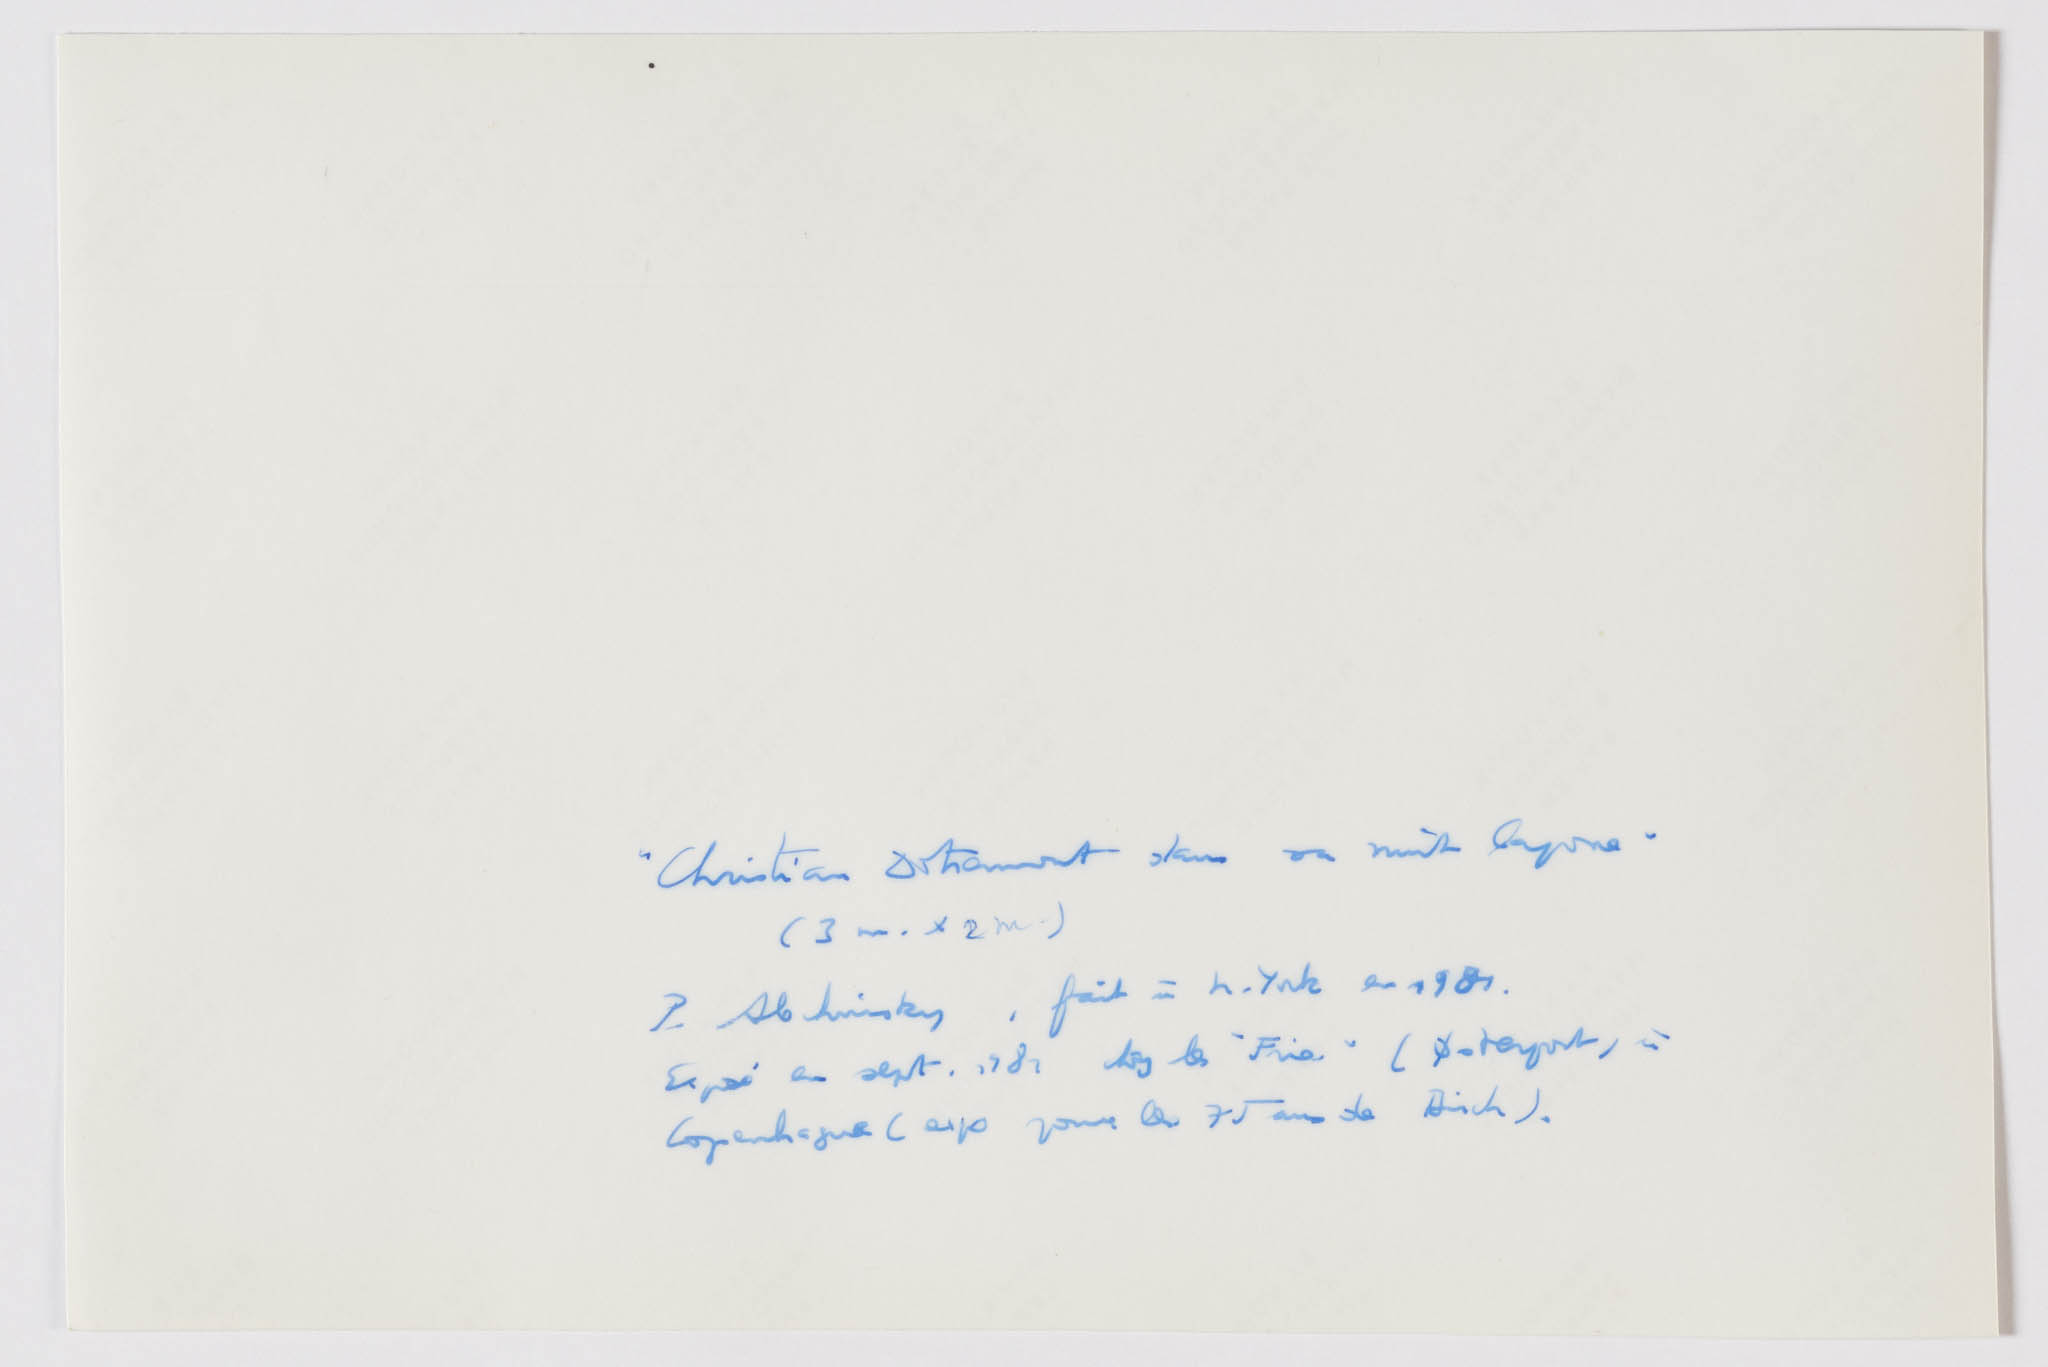 "Christian Dotremont dans sa nuit lapone"
(3 m. x 2 m.)
P. Alechinsky, fait à N. York en 1981.
Exposé en sept. 1981 chez les "Frie" (Østerport, à
Copenhague (expo pour les 75 ans de Birch).